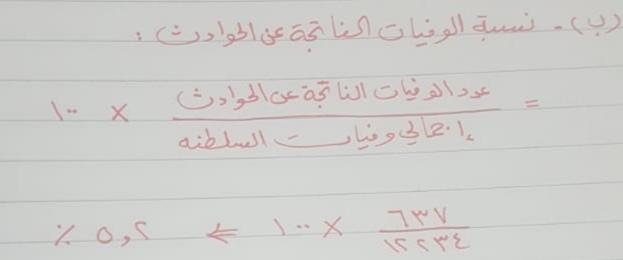 (ب) - نسبة الوفيات الناتجة عن الحوادث :
= عدد الوفيات الناتجة عن الحوادث × ١٠٠
إجمالي وفيات السلطنه
٦٣٧ × ١٠٠ ⇐ ٥,٢ ٪
١٢٢٣٤